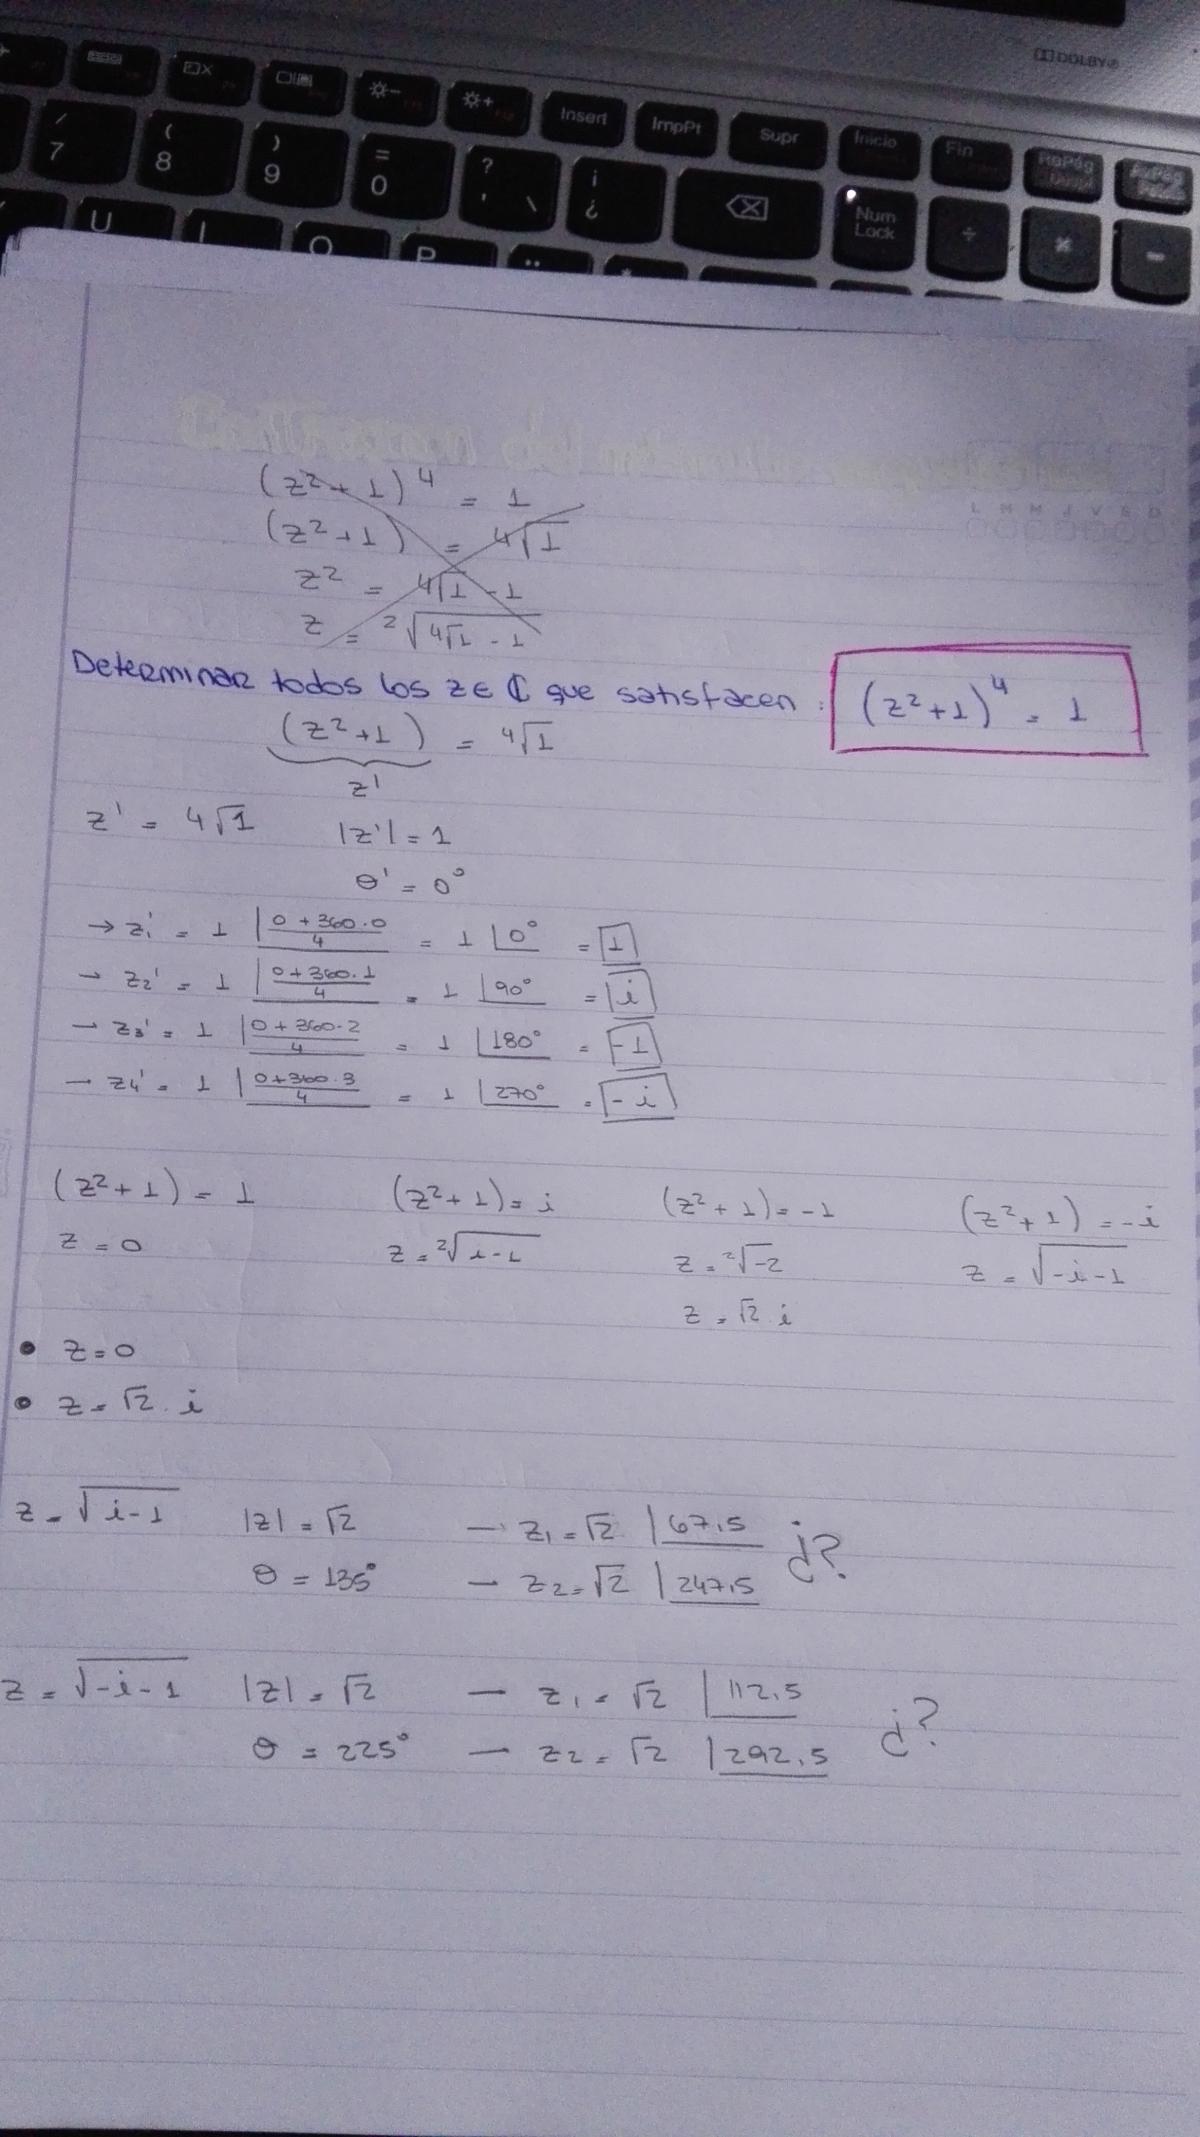 DOLBY
Insert ImpPt Supr Inicio Fin RePág AvPág
/ 7 ( 8 ) 9 = 0 ? ' \ ¡ ¿ Num Lock ÷ * -
U I O P
L M M J V S D
(z² + 1)⁴ = 1
(z² + 1) = ⁴√1
z² = ⁴√1 - 1
z = ²√(⁴√1 - 1)
Determinar todos los z ∈ ℂ que satisfacen : (z² + 1)⁴ = 1
(z² + 1) = ⁴√1
z'
z' = ⁴√1 |z'| = 1
θ' = 0°
→ z₁' = 1 |(0 + 360·0)/4 = 1 |0° = 1
→ z₂' = 1 |(0 + 360·1)/4 = 1 |90° = i
→ z₃' = 1 |(0 + 360·2)/4 = 1 |180° = -1
→ z₄' = 1 |(0 + 360·3)/4 = 1 |270° = -i
(z² + 1) = 1 (z² + 1) = i (z² + 1) = -1 (z² + 1) = -i
z = 0 z = ²√(i - 1) z = ²√-2 z = √(-i - 1)
z = √2 · i
• z = 0
• z = √2 · i
z = √(i - 1) |z| = √2 → z₁ = √2 |67,5 ¿?
θ = 135° → z₂ = √2 |247,5
z = √(-i - 1) |z| = √2 → z₁ = √2 |112,5 ¿?
θ = 225° → z₂ = √2 |292,5